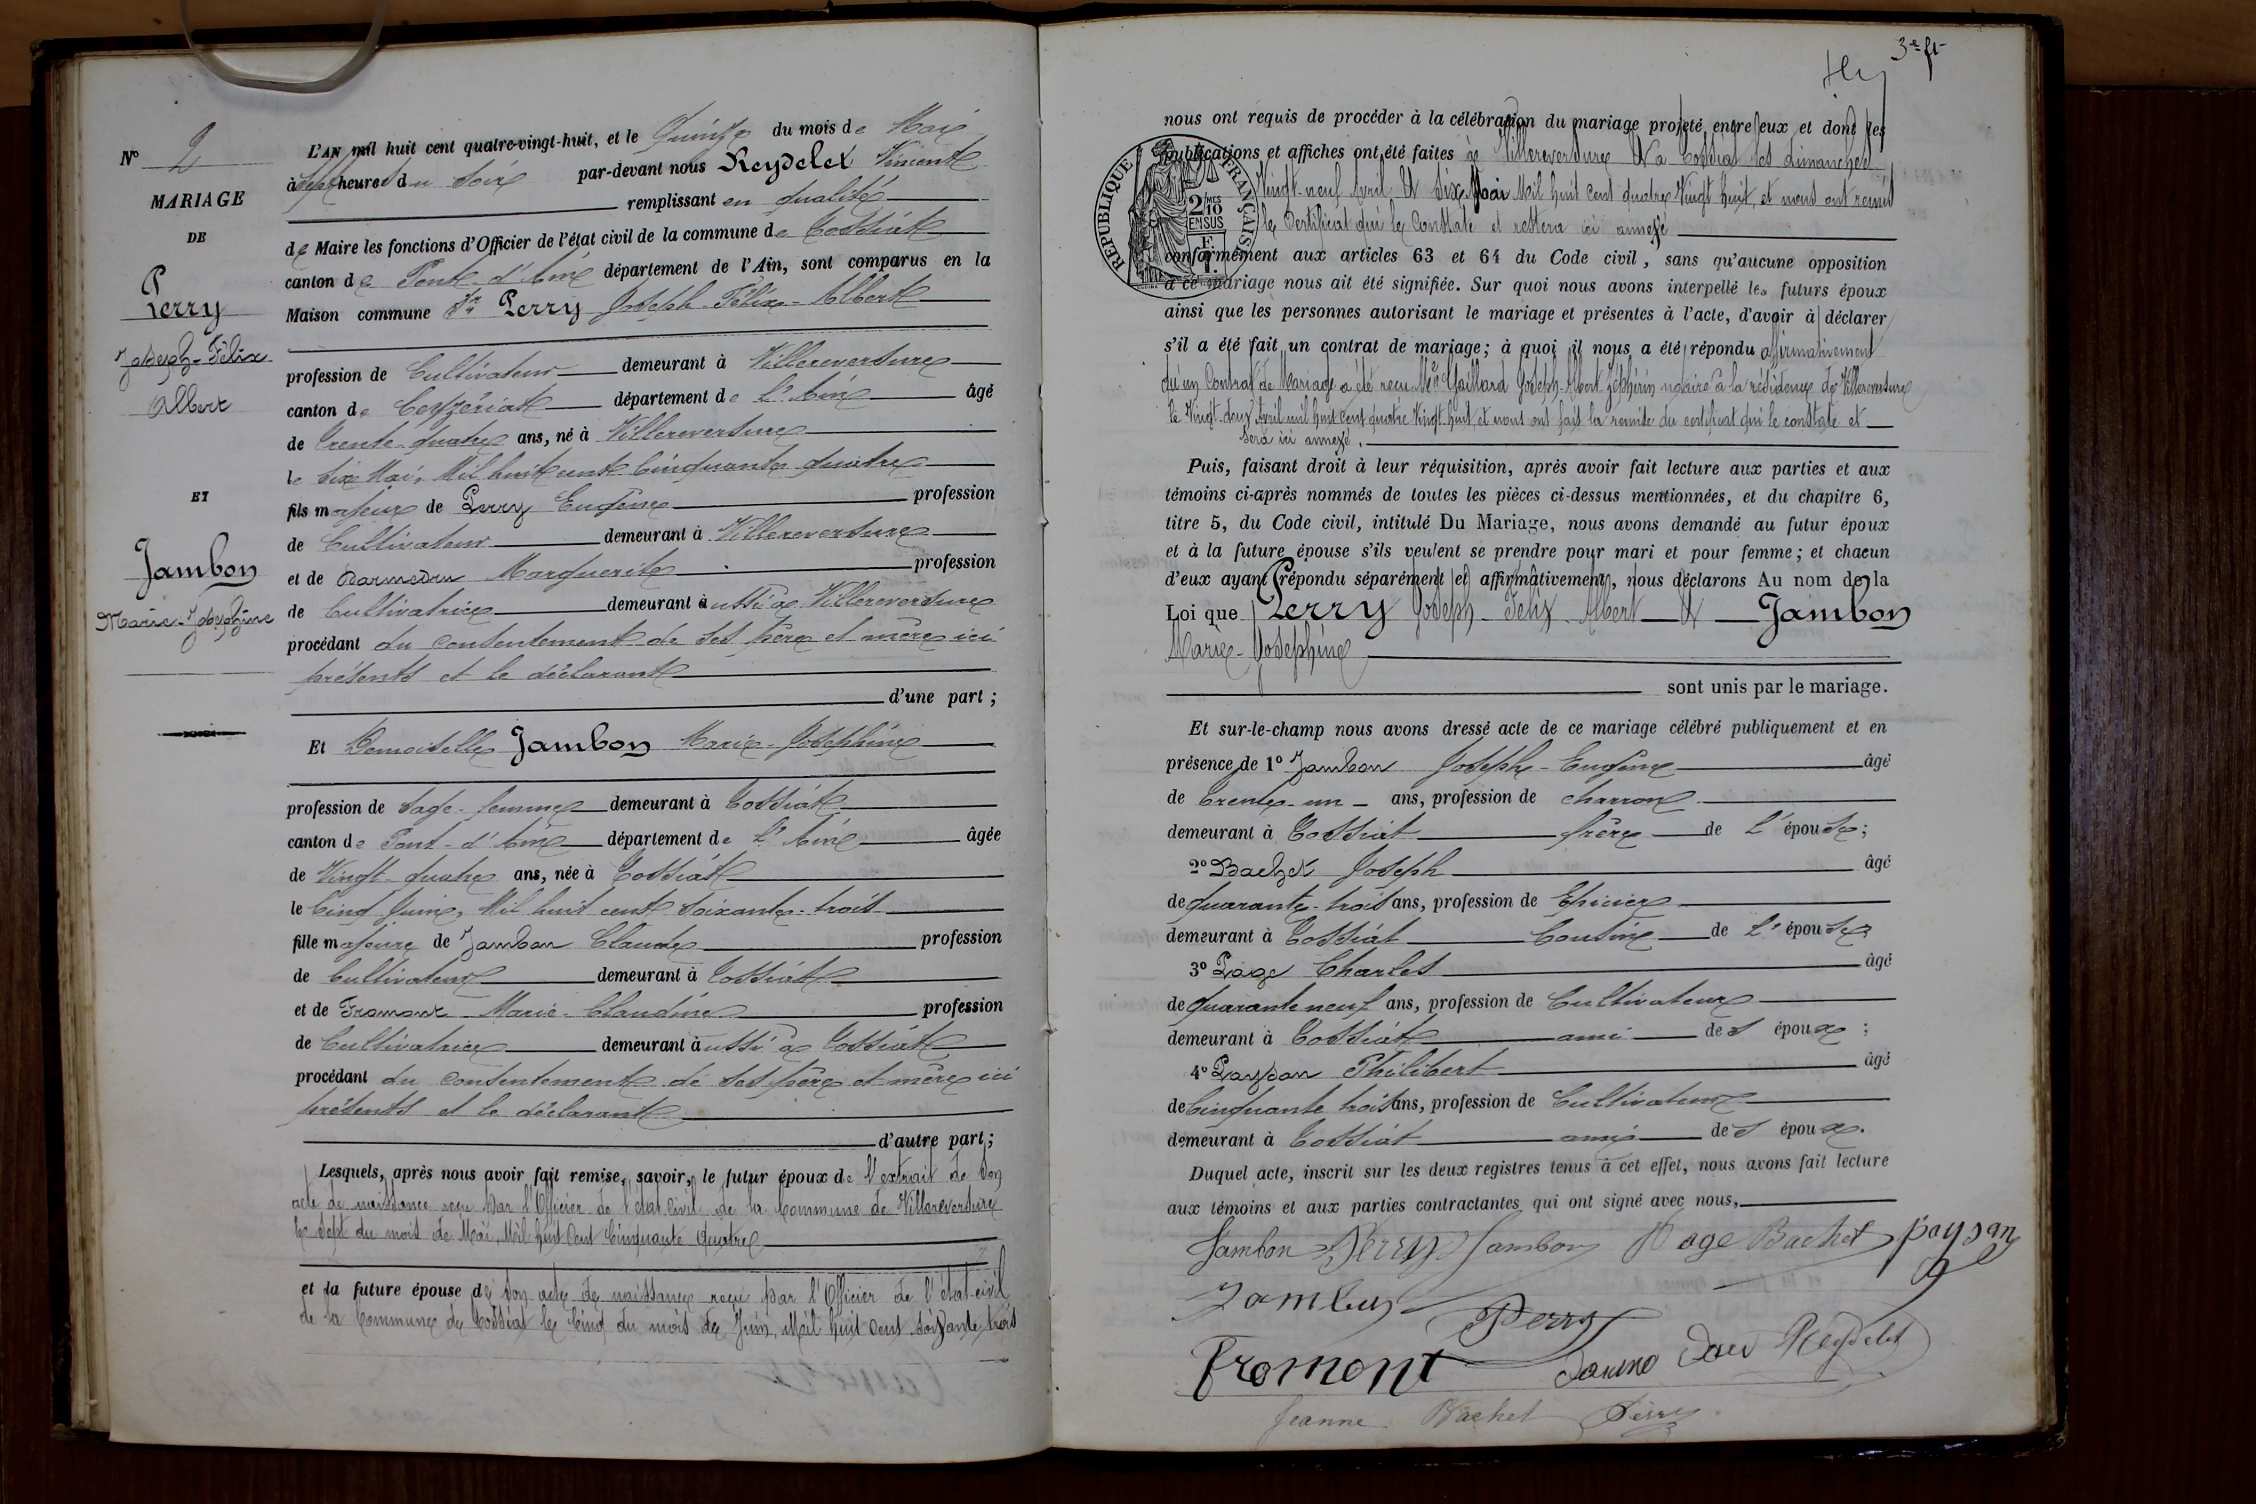 N° 2
MARIAGE
DE
Perry
Joseph-Félix
Albert
ET
Jambon
Marie-Joséphine
L'AN mil huit cent quatre-vingt-huit, et le Quinze du mois de Mai
à sept heures du soir par-devant nous Reydelet Vincent
remplissant en qualité
de Maire les fonctions d'Officier de l'état civil de la commune de Cossiat
canton de Pont-d'Ain département de l'Ain, sont comparus en la
Maison commune Sr Perry Joseph-Félix-Albert
profession de Cultivateur demeurant à Villereversure
canton de Ceyzériat département de L'Ain âgé
de Trente-quatre ans, né à Villereversure
le six Mai, Mil huit cent Cinquante-quatre
fils majeur de Perry Eugène profession
de Cultivateur demeurant à Villereversure
et de Darmedru Marguerite profession
de Cultivatrice demeurant aussi à Villereversure
procédant du consentement de ses père et mère ici
présents et le déclarant
d'une part ;
Et Demoiselle Jambon Marie-Joséphine
profession de Sage-femme demeurant à Cossiat
canton de Pont-d'Ain département de L'Ain âgée
de Vingt-quatre ans, née à Cossiat
le Cinq Juin, Mil huit cent soixante-trois
fille majeure de Jambon Claude profession
de Cultivateur demeurant à Cossiat
et de Fromont Marie-Claudine profession
de Cultivatrice demeurant aussi à Cossiat
procédant du consentement de ses père et mère ici
présents et le déclarant
d'autre part ;
Lesquels, après nous avoir fait remise, savoir, le futur époux de l'extrait de son
acte de naissance reçu par l'Officier de l'état-civil de la Commune de Villereversure
le sept du mois de Mai, Mil huit Cent Cinquante quatre
et la future épouse de son acte de naissance reçu par l'Officier de l'état-civil
de la Commune de Cossiat le Cinq du mois de Juin, Mil huit cent soixante trois
3e ft
nous ont requis de procéder à la célébration du mariage projeté entre eux et dont les
publications et affiches ont été faites à Villereversure & à Cossiat les dimanches
Vingt-neuf Avril & six Mai Mil huit cent quatre Vingt huit, et nous ont remis
le Certificat qui le Constate et restera ici annexé
RÉPUBLIQUE FRANÇAISE
2/10 MES
EN SUS
conformément aux articles 63 et 64 du Code civil, sans qu'aucune opposition
à ce mariage nous ait été signifiée. Sur quoi nous avons interpellé les futurs époux
ainsi que les personnes autorisant le mariage et présentes à l'acte, d'avoir à déclarer
s'il a été fait un contrat de mariage ; à quoi il nous a été répondu affirmativement
qu'un Contrat de Mariage a été reçu Me Gaillard Joseph-Albert Zéphirin notaire à la résidence de Villereversure
le Vingt-deux Avril mil huit cent quatre Vingt-huit, et nous ont fait la remise du certificat qui le constate et
sera ici annexé.
Puis, faisant droit à leur réquisition, après avoir fait lecture aux parties et aux
témoins ci-après nommés de toutes les pièces ci-dessus mentionnées, et du chapitre 6,
titre 5, du Code civil, intitulé Du Mariage, nous avons demandé au futur époux
et à la future épouse s'ils veulent se prendre pour mari et pour femme ; et chacun
d'eux ayant répondu séparément et affirmativement, nous déclarons Au nom de la
Loi que Perry Joseph-Félix-Albert & Jambon
Marie-Joséphine
sont unis par le mariage.
Et sur-le-champ nous avons dressé acte de ce mariage célébré publiquement et en
présence de 1° Jambon Joseph-Eugène âgé
de Trente-un ans, profession de charron
demeurant à Cossiat frère de L'épouse ;
2° Bachet Joseph âgé
de quarante-trois ans, profession de Epicier
demeurant à Cossiat Cousin de L'épouse
3° Page Charles âgé
de quarante neuf ans, profession de Cultivateur
demeurant à Cossiat ami des époux ;
4° Paysan Philibert âgé
de Cinquante trois ans, profession de Cultivateur
demeurant à Cossiat ami des époux.
Duquel acte, inscrit sur les deux registres tenus à cet effet, nous avons fait lecture
aux témoins et aux parties contractantes qui ont signé avec nous,
Jambon Perry Jambon Page Bachet paysan
Jambon Perry
Fromont Reydelet
Jeanne Bachet Perry